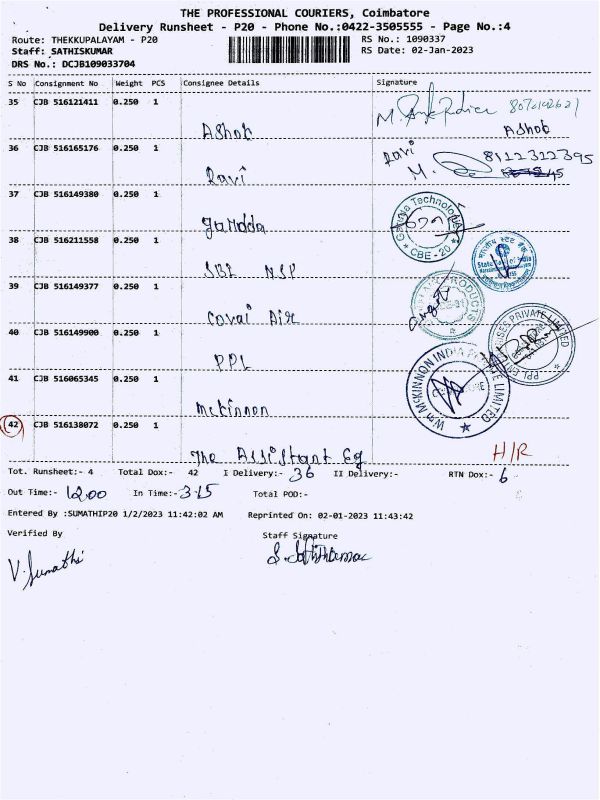 THE PROFESSIONAL COURIERS, Coimbatore
Delivery Runsheet - P20 - Phone No.:0422-3505555 - Page No.:4
Route: THEKKUPALAYAM - P20
RS No.: 1090337
Staff: SATHISKUMAR
RS Date: 02-Jan-2023
DRS No.: DCJB109033704
S No Consignment No Weight PCS Consignee Details Signature
35 CJB 516121411 0.250 1
Ashok Ashok
36 CJB 516165176 0.250 1 Ravi 8112312395
Ravi M.
37 CJB 516149380 0.250 1
Garuda Technologies
* CBE-20 *
38 CJB 516211558 0.250 1
SBI NSP
State Bank of India
39 CJB 516149377 0.250 1
Covai Air
PRODUCTS
40 CJB 516149900 0.250 1
PPL
PRIVATE LIMITED
41 CJB 516065345 0.250 1
Mckinnon
Wm MCKINNON INDIA PRIVATE LIMITED
42 CJB 516138072 0.250 1
The Assistant Eg H/R
Tot. Runsheet:- 4 Total Dox:- 42 I Delivery:- 36 II Delivery:- RTN Dox:- 6
Out Time:- 12.00 In Time:- 3.15 Total POD:-
Entered By :SUMATHIP20 1/2/2023 11:42:02 AM Reprinted On: 02-01-2023 11:43:42
Verified By Staff Signature
V. Sumathi